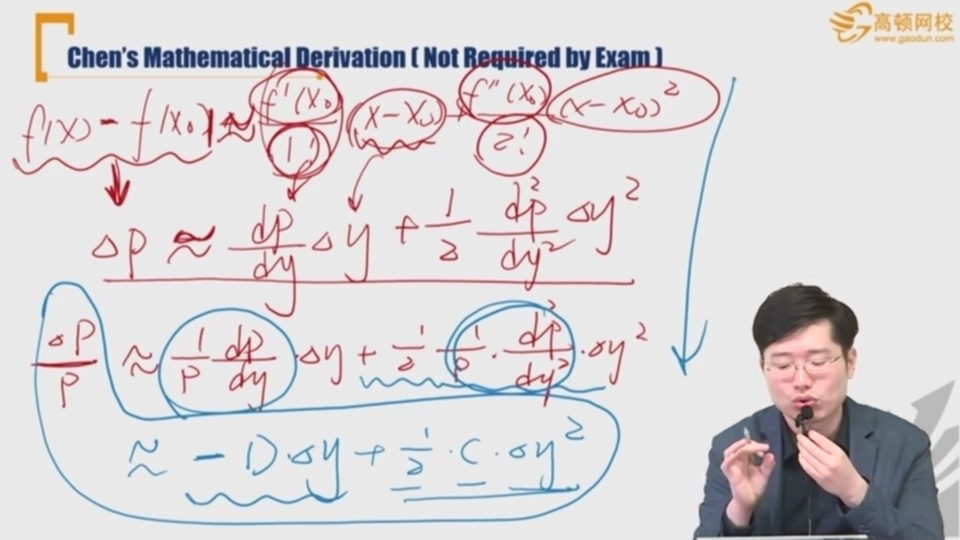 高顿网校
www.gaodun.com
Chen's Mathematical Derivation ( Not Required by Exam )
f(x) - f(x₀) ≈ f'(x₀)/1! (x-x₀) + f''(x₀)/2! (x-x₀)²
△P ≈ dp/dy △y + 1/2 d²p/dy² △y²
△P/P ≈ 1/P dp/dy · △y + 1/2 · 1/P · d²p/dy² · △y²
≈ - D · △y + 1/2 · C · △y²